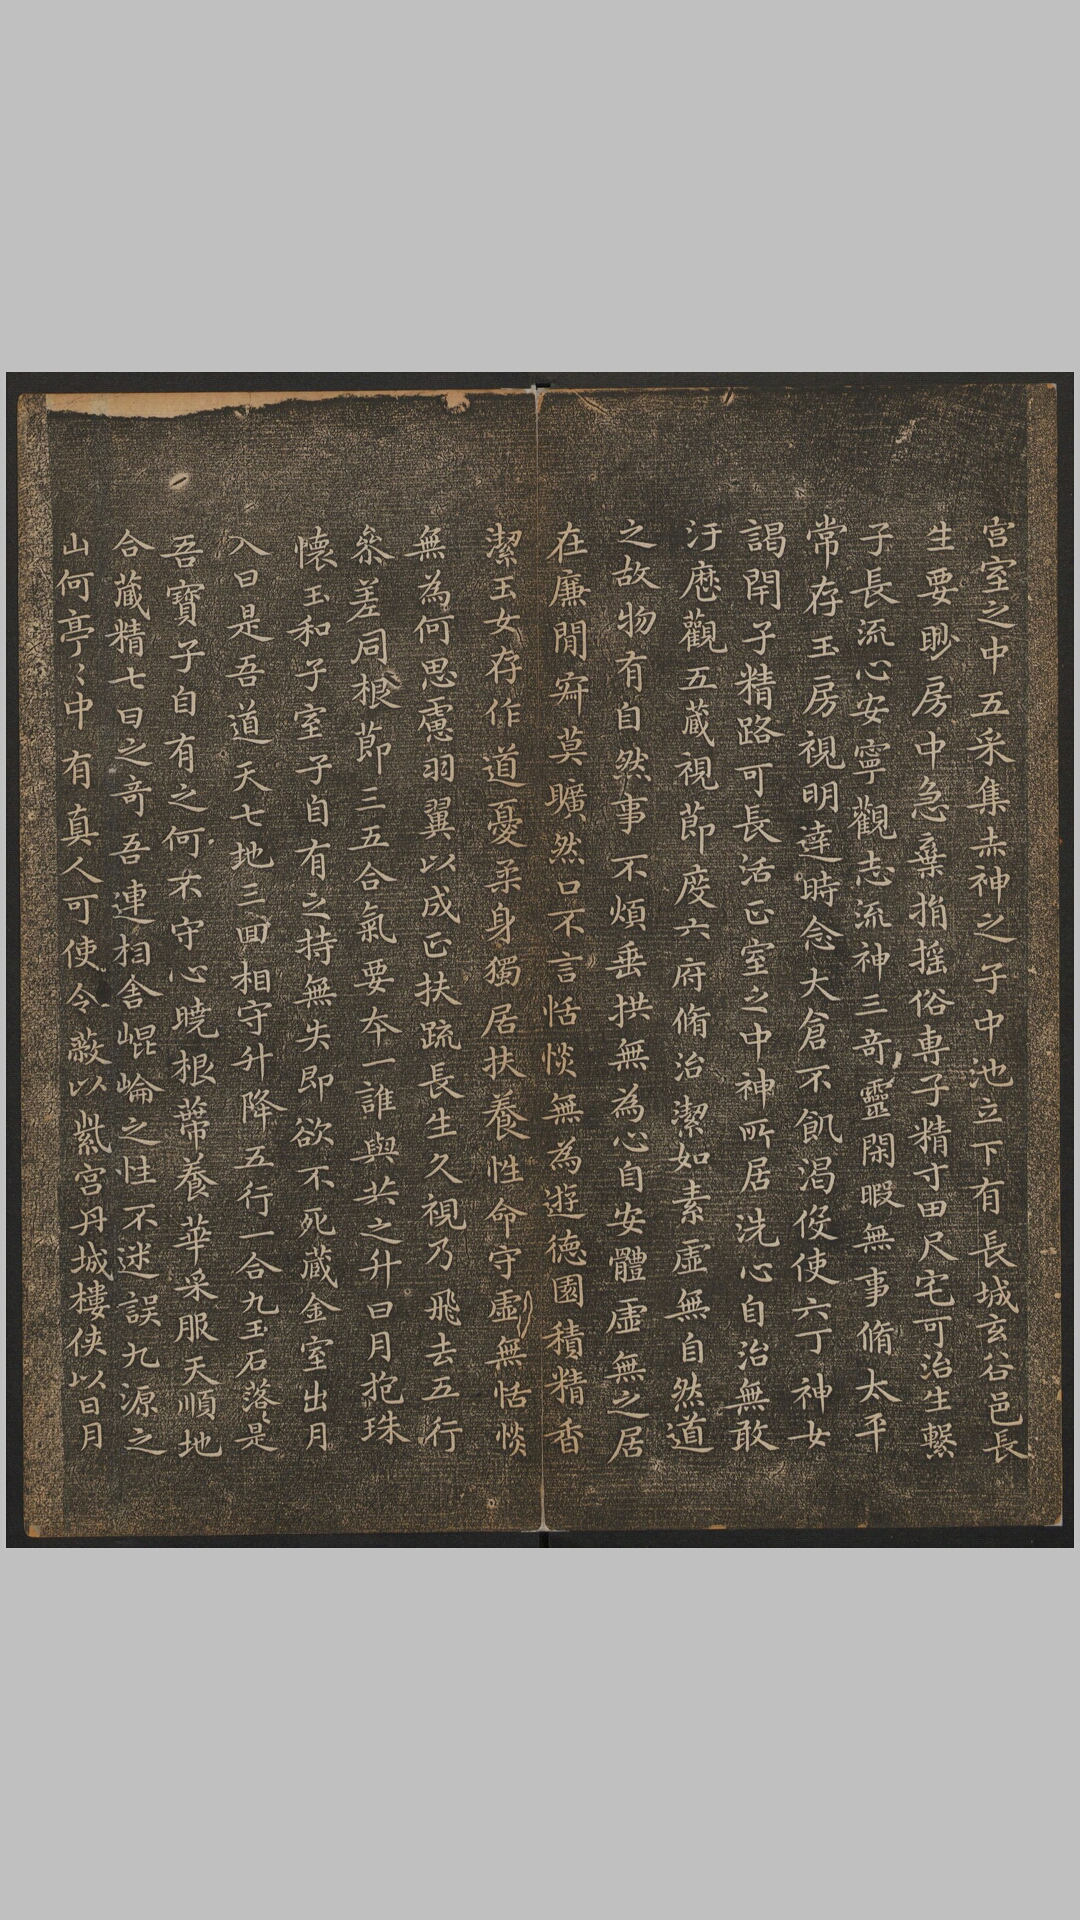 宮室之中五采集赤神之子中池立下有長城玄谷邑長
生要眇房中急棄捐搖俗専子精寸田尺宅可治生繫
子長流心安寧觀志流神三奇靈閑暇無事脩太平
常存玉房視明達時念大倉不飢渴伇使六丁神女
謁閇子精路可長活正室之中神所居洗心自治無敢
汙歷觀五藏視節度六府脩治潔如素虛無自然道
之故物有自然事不煩垂拱無為心自安體虛無之居
在廉閒寂莫曠然口不言恬惔無為遊德園積精香
潔玉女存作道憂柔身獨居扶養性命守虛無恬惔
無為何思慮羽翼以成正扶疏長生久視乃飛去五行
叅差同根節三五合氣要本一誰與共之升日月抱珠
懐玉和子室子自有之持無失即欲不死藏金室出月
入日是吾道天七地三回相守升降五行一合九玉石落落是
吾寶子自有之何不守心曉根蔕養華采服天順地
合藏精七日之奇吾連相舎崐崘之性不迷誤九源之
山何亭〻中有真人可使令蔽以紫宮丹城樓俠以日月